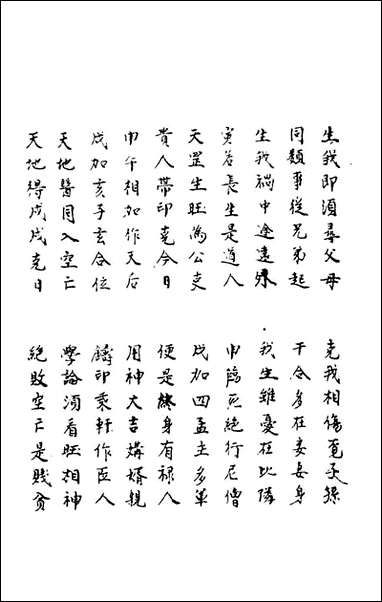 生我即須尋父母
克我相傷覓子孫
同類事從兄弟起
干合多在妻妾身
生我祸中途遠外
我生雖憂在比隣
寅為長生是道人
申為死絕行尼僧
天罡生旺為公吏
戌加四孟主多軍
貴人帶印克今日
便是終身有禄人
巾午相加作天后
用神大吉媾婚親
戌加亥子玄合位
鑄印乘軒作臣人
天地醫同入空亡
學論須看旺相神
天地得戌戌克日
絕敗空亡是賤貧